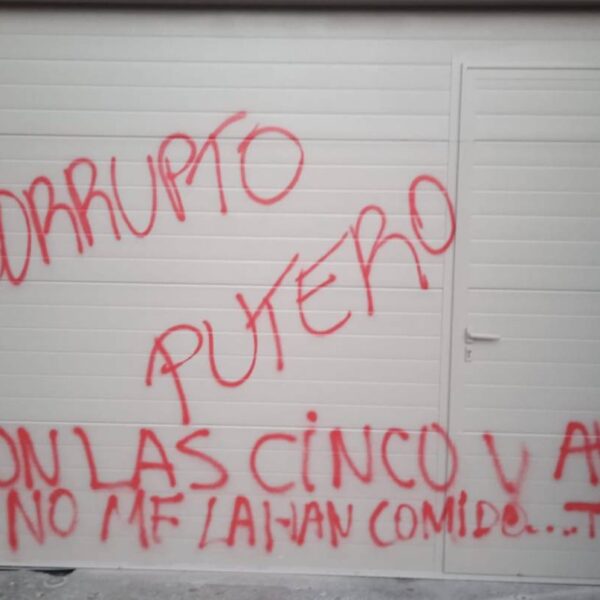 CORRUPTO
PUTERO
ON LAS CINCO Y AU
NO ME LA HAN COMIDO....T